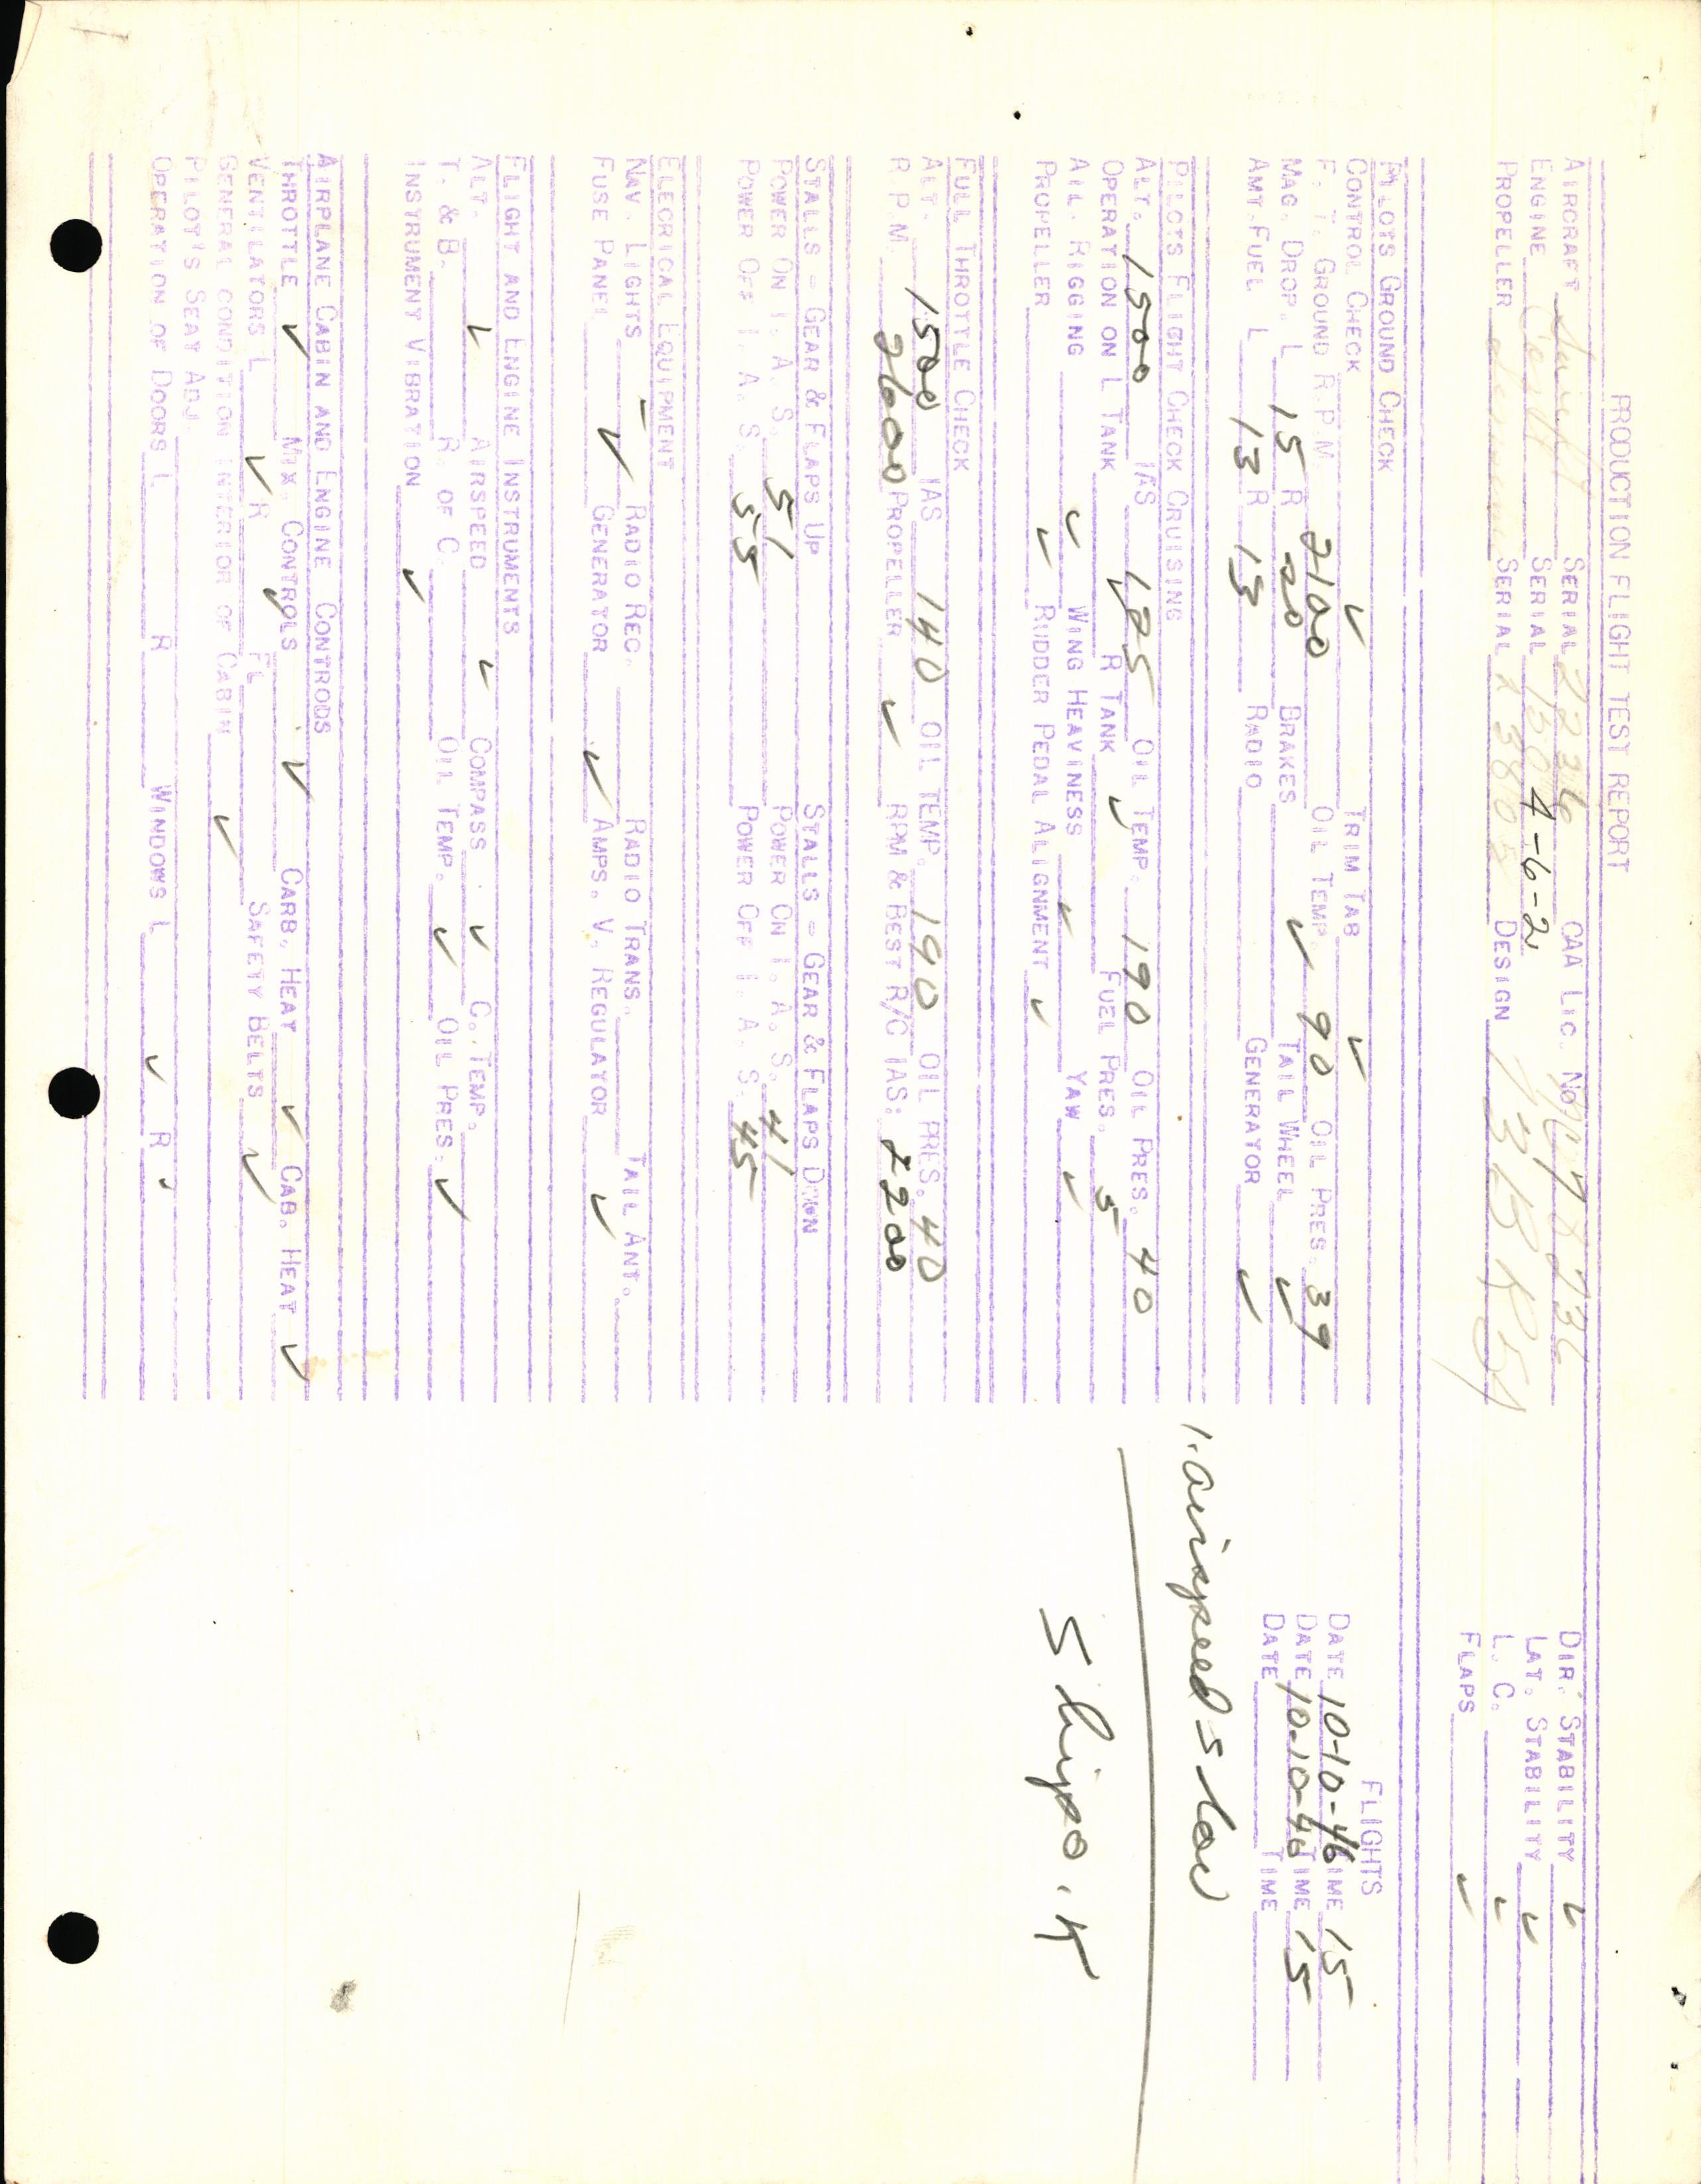 PRODUCTION FLIGHT TEST REPORT
AIRCRAFT Swift SERIAL 2236 CAA LIC. NO. DIR. STABILITY ✓
ENGINE SERIAL 4-6-2 LAT. STABILITY ✓
PROPELLER SERIAL DESIGN L. C. ✓
FLAPS ✓
PILOTS GROUND CHECK
CONTROL CHECK ✓ TRIM TAB ✓
F. T. GROUND R P M 2100 OIL TEMP. 90 OIL PRES. 39
MAG. DROP. L 15 R 20 BRAKES ✓ TAIL WHEEL ✓
AMT. FUEL L 13 R 13 RADIO GENERATOR ✓
FLIGHTS
DATE 10-10-46 TIME 15
DATE 10-10-46 TIME 15
DATE TIME
PILOTS FLIGHT CHECK CRUISING
ALT. 1500 IAS 125 OIL TEMP. 190 OIL PRES. 40
OPERATION ON L TANK ✓ R TANK ✓ FUEL PRES. 5
AIL. RIGGING ✓ WING HEAVINESS ✓ YAW ✓
PROPELLER ✓ RUDDER PEDAL ALIGNMENT ✓
1. airspeed slow
Ship o.k
FULL THROTTLE CHECK
ALT. 1500 IAS 140 OIL TEMP. 190 OIL PRES. 40
R.P.M. 2600 PROPELLER ✓ RPM & BEST R/C IAS: 2200
STALLS = GEAR & FLAPS UP STALLS = GEAR & FLAPS DOWN
POWER ON I. A. S. 51 POWER ON I. A. S. 41
POWER OFF I. A. S. 55 POWER OFF I. A. S. 45
ELECRICAL EQUIPMENT
NAV. LIGHTS - RADIO REC. RADIO TRANS. TAIL ANT.
FUSE PANEL ✓ GENERATOR ✓ AMPS. V. REGULATOR ✓
FLIGHT AND ENGINE INSTRUMENTS
ALT. ✓ AIRSPEED ✓ COMPASS ✓ C. TEMP.
T. & B. R. OF C. OIL TEMP. ✓ OIL PRES. ✓
INSTRUMENT VIBRATION ✓
AIRPLANE CABIN AND ENGINE CONTRODS
THROTTLE ✓ MIX. CONTROLS ✓ CARB. HEAT ✓ CAB. HEAT ✓
VENTILATORS L ✓ R ✓ FL SAFETY BELTS ✓
GENERAL CONDITION INTERIOR OF CABIN ✓
PILOT'S SEAT ADJ.
OPERATION OF DOORS L R WINDOWS L ✓ R